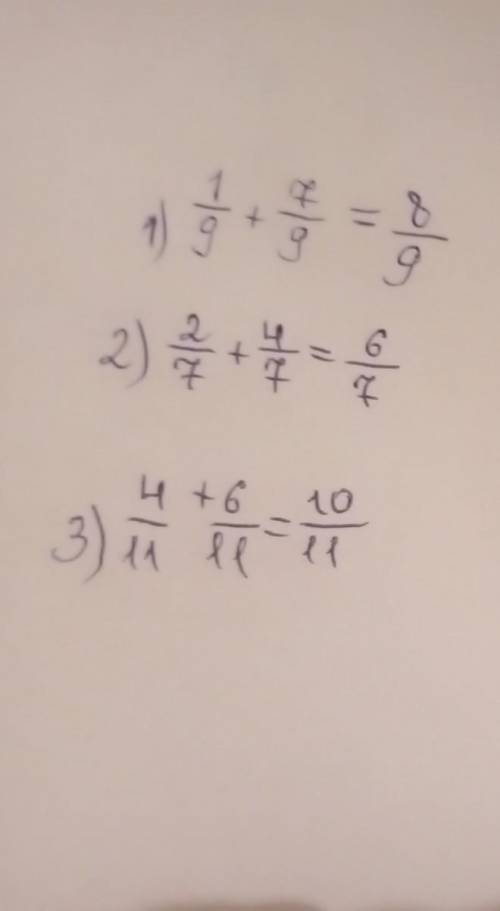 1) 1/9 + 7/9 = 8/9
2) 2/7 + 4/7 = 6/7
3) 4/11 + 6/11 = 10/11